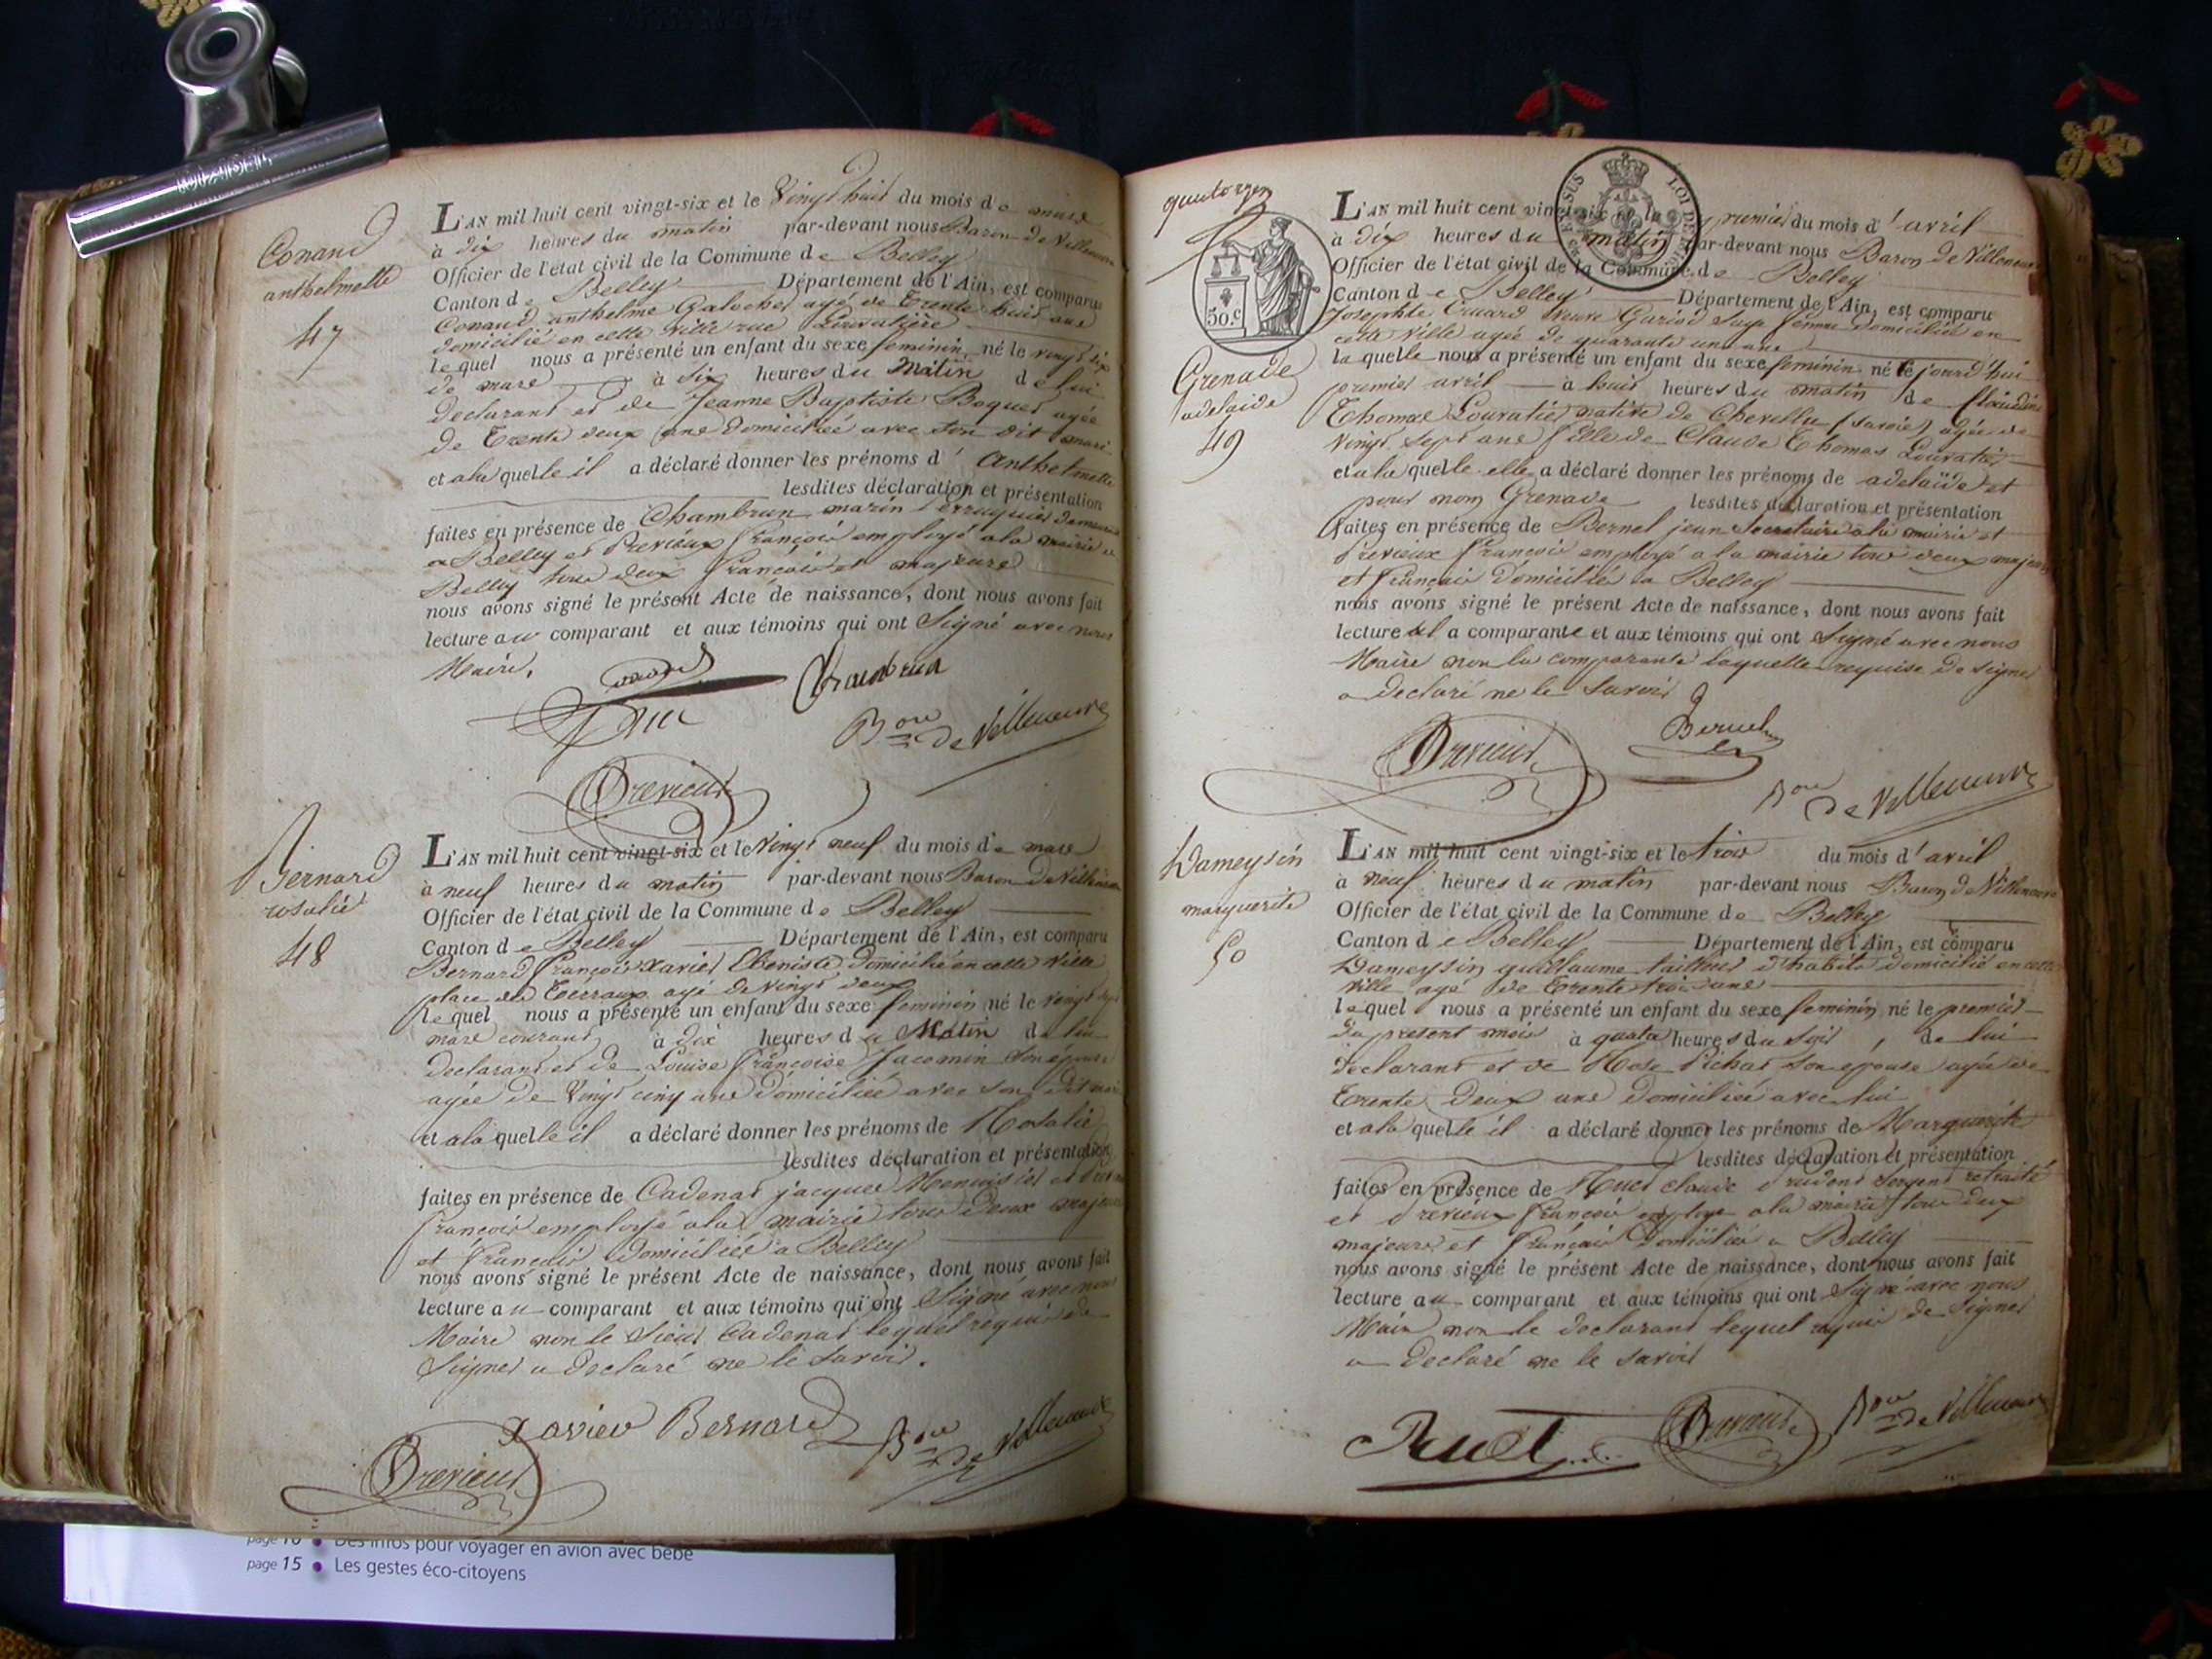 Conand
anthelmette
47
L'AN mil huit cent vingt-six et le Vingt huit du mois de mars
à dix heures du matin par-devant nous Baron de Villeneuve
Officier de l'état civil de la Commune de Belley
Canton de Belley Département de l'Ain, est comparu
Conand anthelme Galocher agé de Trente huit ans
domicilié en cette ville rue
lequel nous a présenté un enfant du sexe feminin né le vingt six
de mars à six heures du Matin de lui
declarant et de Jeanne Baptiste Boquet agée
de Trente deux ans domiciliée avec son dit mari
et a la quelle il a déclaré donner les prénoms d'Anthelmette
lesdites déclaration et présentation
faites en présence de Chambrun marin
a Belley et Previeux François employé a la mairie
Belley tous deux français et majeurs
nous avons signé le présent Acte de naissance, dont nous avons fait
lecture au comparant et aux témoins qui ont Signé avec nous
Maire.
Bon de Villeneuve
Previeux
Bernard
rosalie
48
L'AN mil huit cent vingt-six et le Vingt neuf du mois de mars
à neuf heures du matin par-devant nous Baron de Villeneuve
Officier de l'état civil de la Commune de Belley
Canton de Belley Département de l'Ain, est comparu
Bernard François Xavier Ebeniste domicilié en cette ville
place des Terraux agé de vingt deux
lequel nous a présenté un enfant du sexe feminin né le vingt
mars courant à dix heures du Matin de lui
declarant et de Louise Françoise Jacomin son épouse
agée de Vingt cinq ans domiciliée avec son dit mari
et a la quelle il a déclaré donner les prénoms de Rosalie
lesdites déclaration et présentation
faites en présence de Cadenat jacques Menuisier et
François employé a la mairie tous deux majeurs
et français domiciliés a Belley
nous avons signé le présent Acte de naissance, dont nous avons fait
lecture au comparant et aux témoins qui ont Signé avec nous
Maire non le Sieur Cadenat lequel requis de
Signer a declaré ne le savoir.
Xavier Bernard
Bon de Villeneuve
Previeux
page 15 • Les gestes éco-citoyens
quatorze
50.c
Grenade
adelaide
49
L'AN mil huit cent vingt-six et le premier du mois d'avril
à dix heures du matin par-devant nous Baron de Villeneuve
Officier de l'état civil de la Commune de Belley
Canton de Belley Département de l'Ain, est comparu
Josephte veuve sage femme domiciliée en
cette ville agée de quarante un ans
la quelle nous a présenté un enfant du sexe feminin né le jourd'hui
premier avril à huit heures du matin de Claudine
Thomas Louvatier native de (savoie) agée de
vingt sept ans fille de Claude Thomas Louvatier
et a la quelle elle a déclaré donner les prénoms de adelaïde et
pour nom Grenade lesdites déclaration et présentation
faites en présence de Bernel jean Secretaire a la mairie et
Previeux François employé a la mairie tous deux majeurs
et français domiciliés a Belley
nous avons signé le présent Acte de naissance, dont nous avons fait
lecture a la comparante et aux témoins qui ont Signé avec nous
Maire non la comparante laquelle requise de signer
a declaré ne le savoir
Previeux
Bernel
Bon de Villeneuve
Dameysin
marguerite
50
L'AN mil huit cent vingt-six et le trois du mois d'avril
à neuf heures du matin par-devant nous Baron de Villeneuve
Officier de l'état civil de la Commune de Belley
Canton de Belley Département de l'Ain, est comparu
Dameysin guillaume tailleur d'habits domicilié en cette
ville agé de trente trois ans
lequel nous a présenté un enfant du sexe feminin né le premier
du present mois à quatre heures du Soir, de lui
declarant et de Rose Pichat son epouse agée de
Trente Deux ans domiciliée avec lui
et a la quelle il a déclaré donner les prénoms de Marguerite
lesdites déclaration et présentation
faites en présence de Ruet claude prudent Sergent retraité
et Previeux François employé a la mairie tous deux
majeurs et français domiciliés a Belley
nous avons signé le présent Acte de naissance, dont nous avons fait
lecture au comparant et aux témoins qui ont Signé avec nous
Maire non le declarant lequel requis de Signer
a declaré ne le savoir
Ruet
Previeux
Bon de Villeneuve